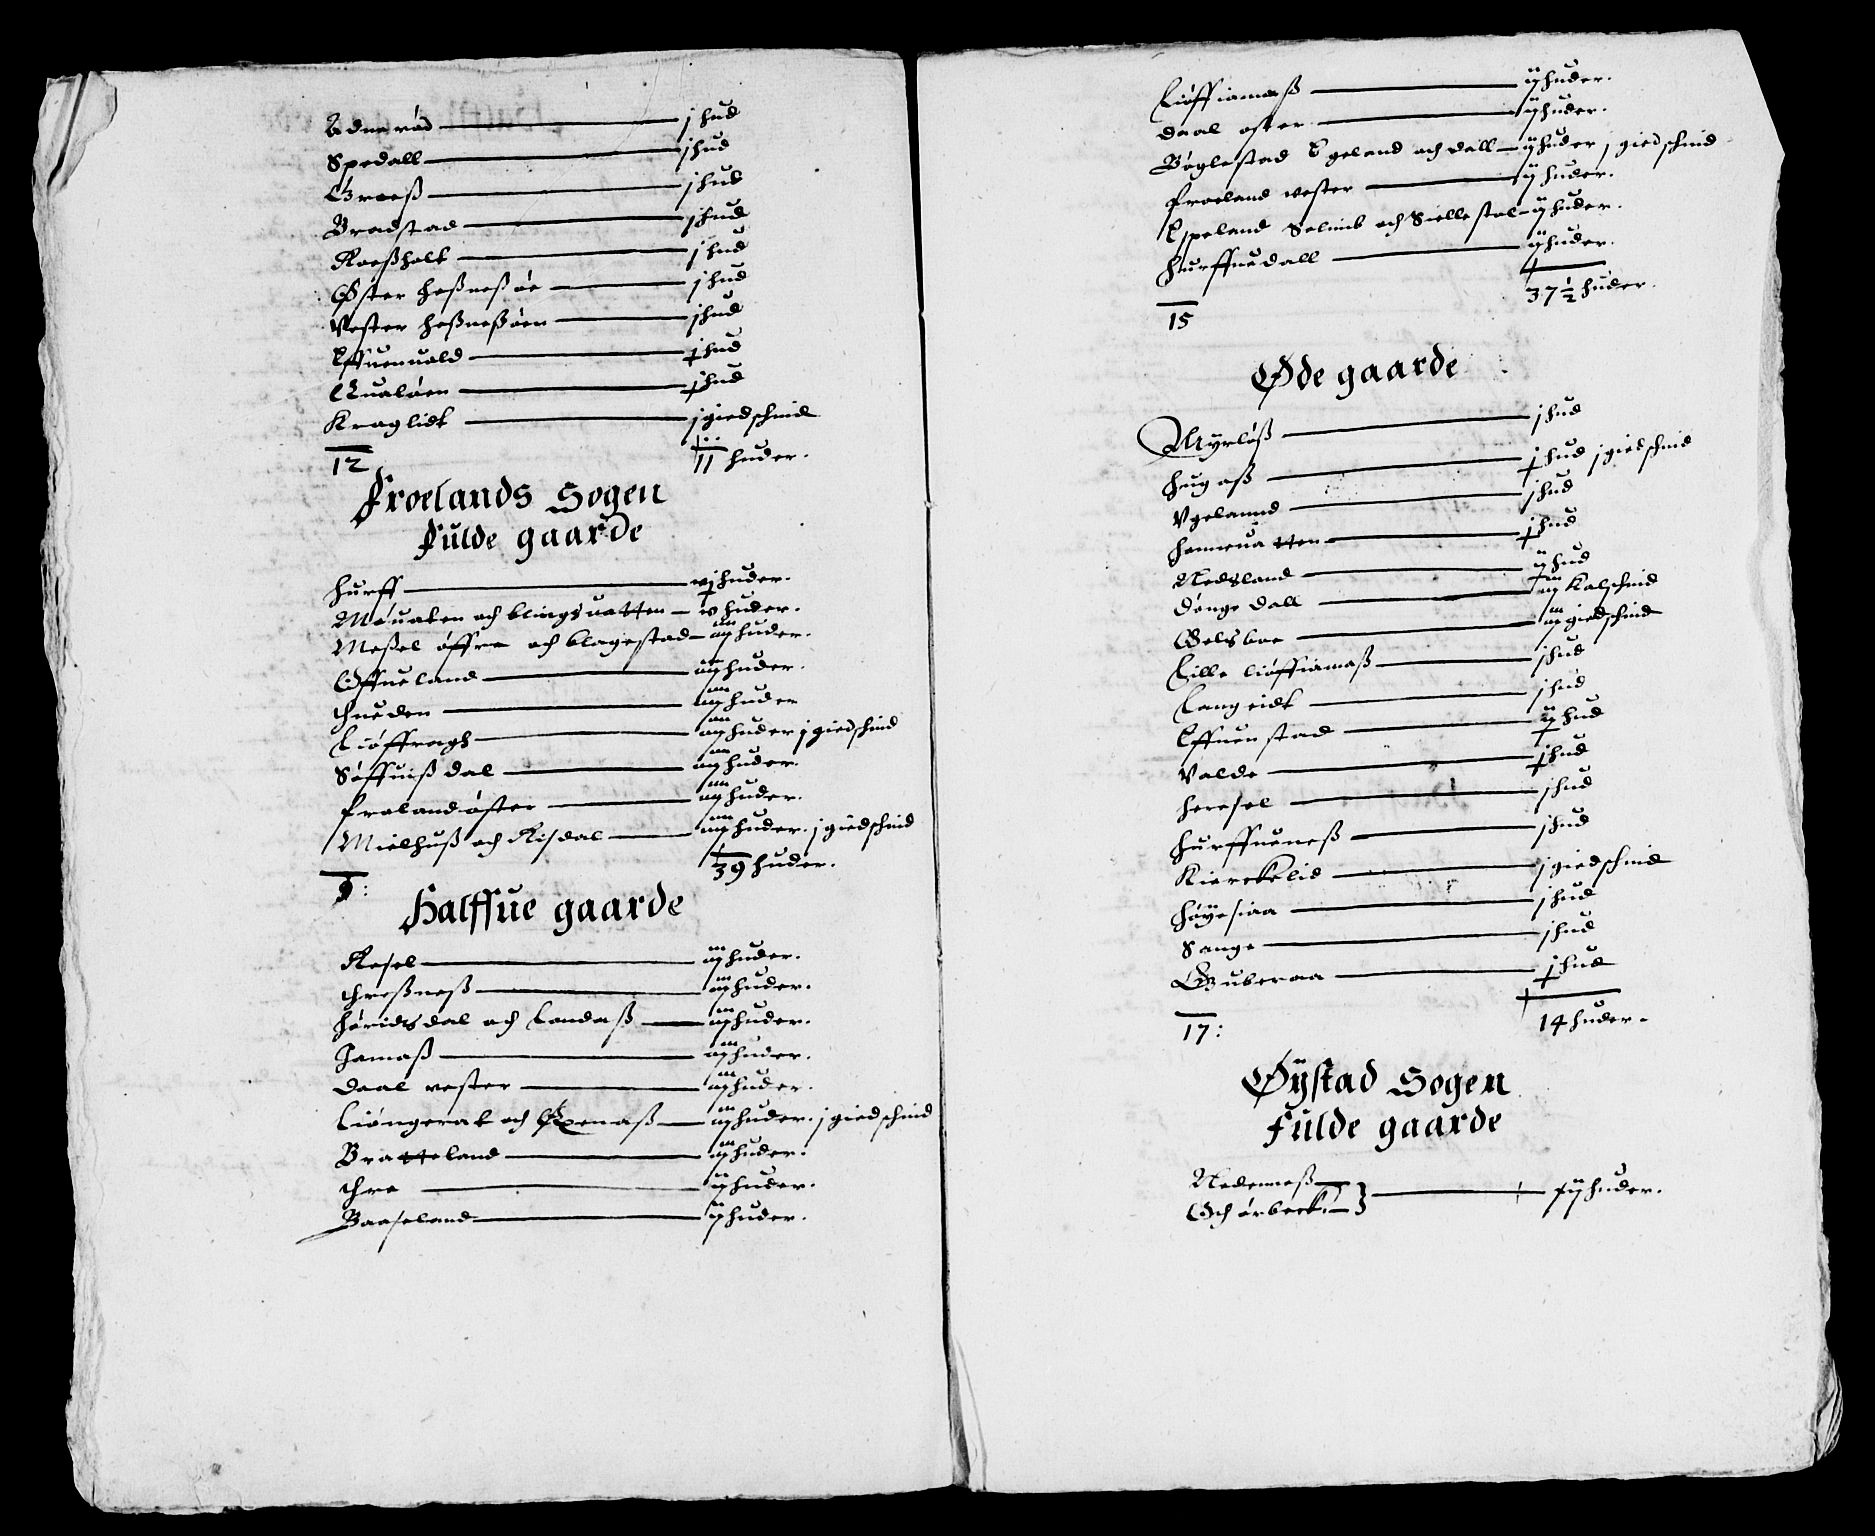 Adnerød — j hud
Spedall — j hud
Groeß — j hud
Bradstad — j hud
Roeßholt — j hud
Øster Heßneßøe — j hud
Vester Heßneßøen — j hud
Effueuald — j hud
Qualøen — j hud
Kraglidt — j giedschind
12
11 huder.
Froelands Sogen
Fulde gaarde
Hurff — vj huder.
Møuaten och blingsuatten — v huder.
Meßel øffre och klagestad — iiij huder.
Offueland — iiij huder.
Hueden — iiij huder
Liøffragh — iiij huder j giedschind
Søffuiß dal — iiij huder.
Froland øster — iiij huder.
Mielhuß och Risdal — iiij huder. j giedschind
9:
39 huder.
Halffue gaarde
Resel — iij huder.
Hreßneß — iij huder.
Høridsdal och Landaß — iij huder.
Jamaß — iij huder.
Daal vester — iij huder.
Liøngerat och Øxenaß — iij huder. j giedschind
Bratteland — iij huder.
Hre — ij huder.
Baaseland — ij huder.
Liøffiamaß — ij huder.
Daal øster — ij huder.
Bøglestad Egeland och Dall — ij huder j giedschind
Froeland vester — ij huder.
Espeland Selmb och Siellestøl — ij huder.
Hurffuedall — ij huder.
15
37½ huder.
Øde gaarde
Myrløß — j hud
Hugaß — j hud j giedschind
Vgelannd — j hud
Henneuatten — j hud
Nedsland — ij hud
Dønge dall — iij Kalschind
Gelsboe — iij giedschind
Lille liøffiamaß — j hud
Langeidt — j hud
Effuenstad — ij hud
Valde — j hud
Heresel — j hud
Hurffueneß — j hud
Kierckelid — j giedschind
Høyesiaa — j hud
Sange — j hud
Guberaa — j hud
17:
14 huder.
Øÿstad Sogen
Fulde gaarde
Nedenneß
Och ørbeck — huder.